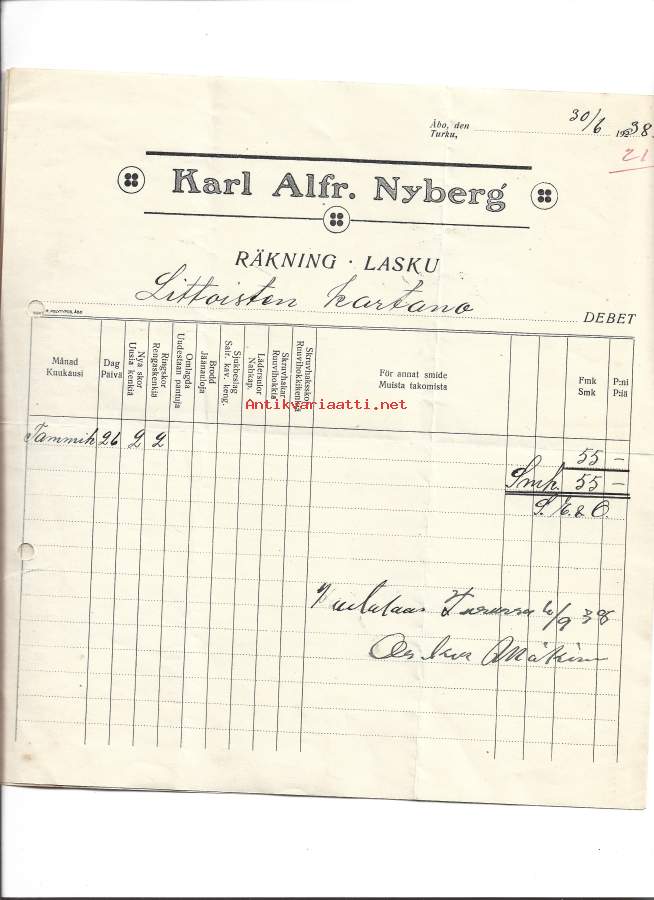 Åbo, den
Turku, 30/6 1938.
21
Karl Alfr. Nyberg
RÄKNING · LASKU
Littoisten kartano DEBET
Månad
Kuukausi
Dag
Päivä
Nya skor
Uusia kenkiä
Ringskor
Rengaskenkiä
Omlagda
Uudestaan pantuja
Brodd
Jäänauloja
Sjukbeslag
Sair. kav. keng.
Lädersulor
Nahkap.
Skruvhakar
Ruuvihokkia
Skruvhaksskor
Ruuvihokkikenkiä
För annat smide
Muista takomista
Fmk
Smk
P:ni
P:iä
Antikvariaatti.net
Tammik 26 2 2
55 —
Smk. 55 —
S. E. & O.
9/9 38
Oskar Mäkinen